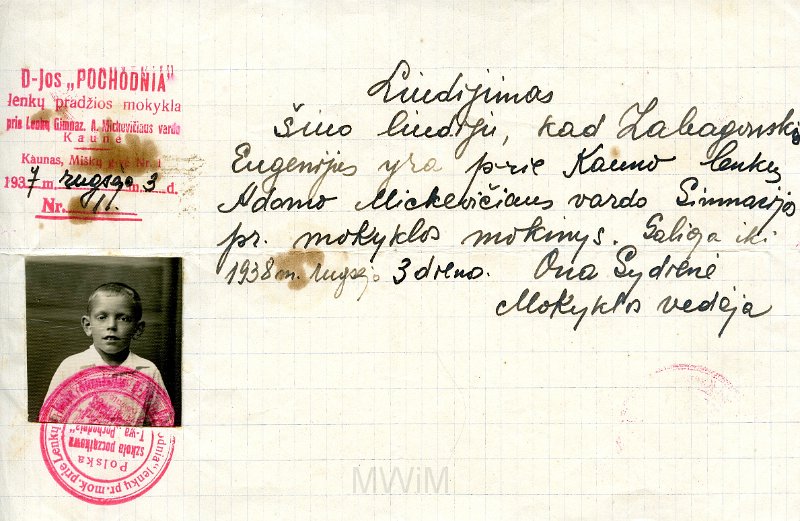 D-jos „POCHODNIA"
lenkų pradžios mokykla
prie Lenkų Gimnaz. A. Mickevičiaus vardo
Kaune
Kaunas, Miškų g-vė Nr. 1
1937 m. rugsėjo 3 d.
Nr. 11.
Liudijimas
Šiuo liudiju, kad Zabagonskis
Eugenijus yra prie Kauno lenkų
Adomo Mickevičiaus vardo Gimnazijos
pr. mokyklos mokinys. Galioja iki
1938 m. rugsėjo 3 dieno. Ona Gydrienė
Mokyklos vedėja
Polska
szkoła początkowa
T-wa „Pochodnia"
lenkų pr. mok. prie Lenkų
MWiM